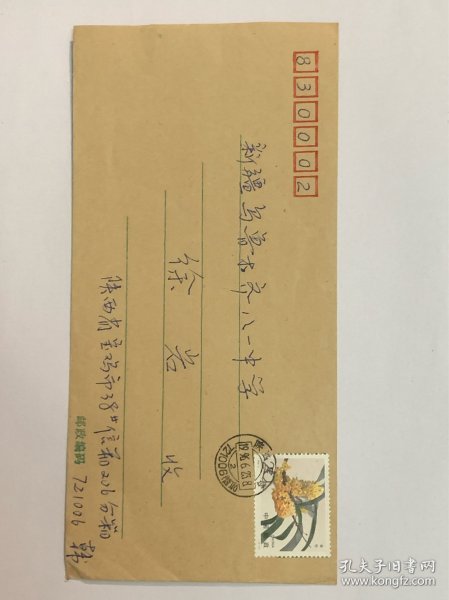 830002
新疆乌鲁木齐八一中学
徐岩 收
陕西省宝鸡市38#信箱206分箱
邮政编码 721006 韩
721006
孔夫子旧书网